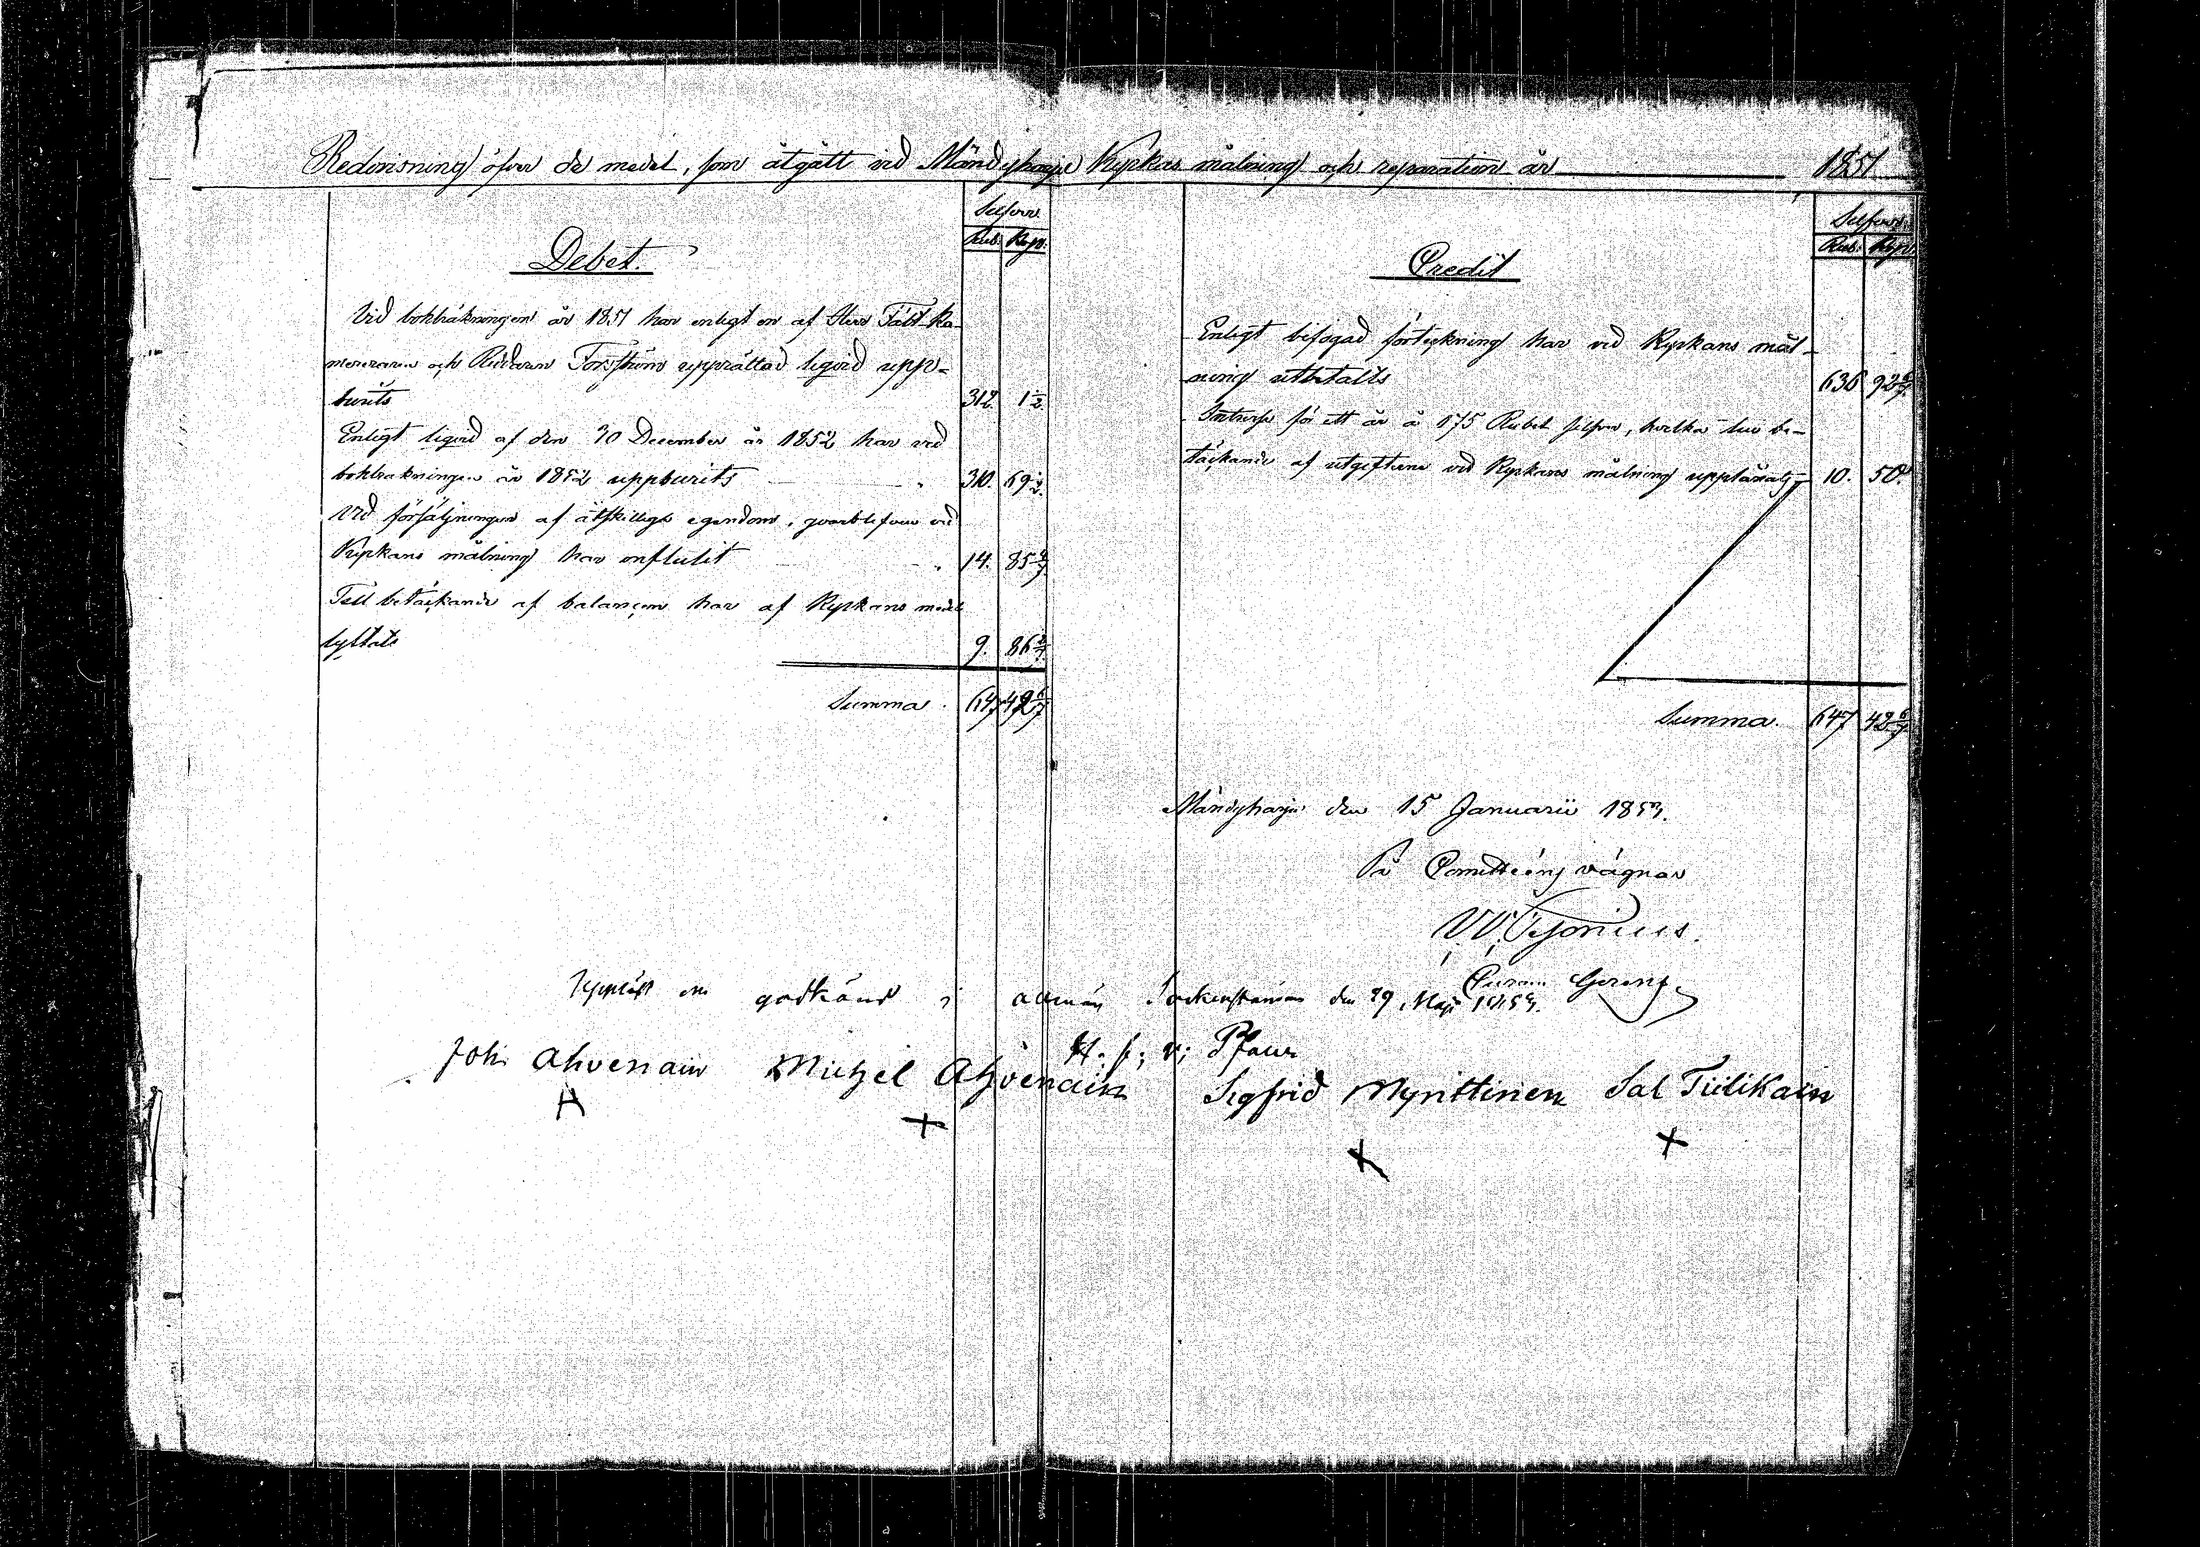 Redovisning öfver de medel, som åtgått vid Mändyharju Kyrkas målning och reparation år 1851
Silfver
Rub. Kop.
Debet.
Vid bokräkningen år 1851 har enligt en af Herr Fält-Ka-
mereraren och Riddaren Forsström upprättad liqvid upp-
burits 312. 1 1/2
Enligt liqvid af den 30 December år 1852 har vid
bokräkningen år 1852 uppburits 310. 69 1/2.
Vid försäljningen af åtskillig egendom, qvarblifven vid
Kyrkans målning har influtit 14. 85 4/7
Till betäckande af balancen har af Kyrkans medel
lyftats 9. 86 2/7
Summa. 647 42 6/7
Silfver.
Rub. Kop.
Credit
Enligt bifogad förteckning har vid Kyrkans mål-
ning utbetalts 636 92 6/7.
Intresse för ett år å 175 Rubel silfver, hvilka till be-
täckande af utgifterne vid Kyrkans målning upplånats 10. 50.
Summa. 647 42 6/7
Mändyharju den 15 Januarii 1853.
På Comitteens vägnar
W. Cygnæus.
Uppläst och godkänd i allmän Sockenstämma den 29 Maji 1853.
Joh: Ahvenain Michel Ahvenain Sigfrid Mynttinen Sal Tiilikain